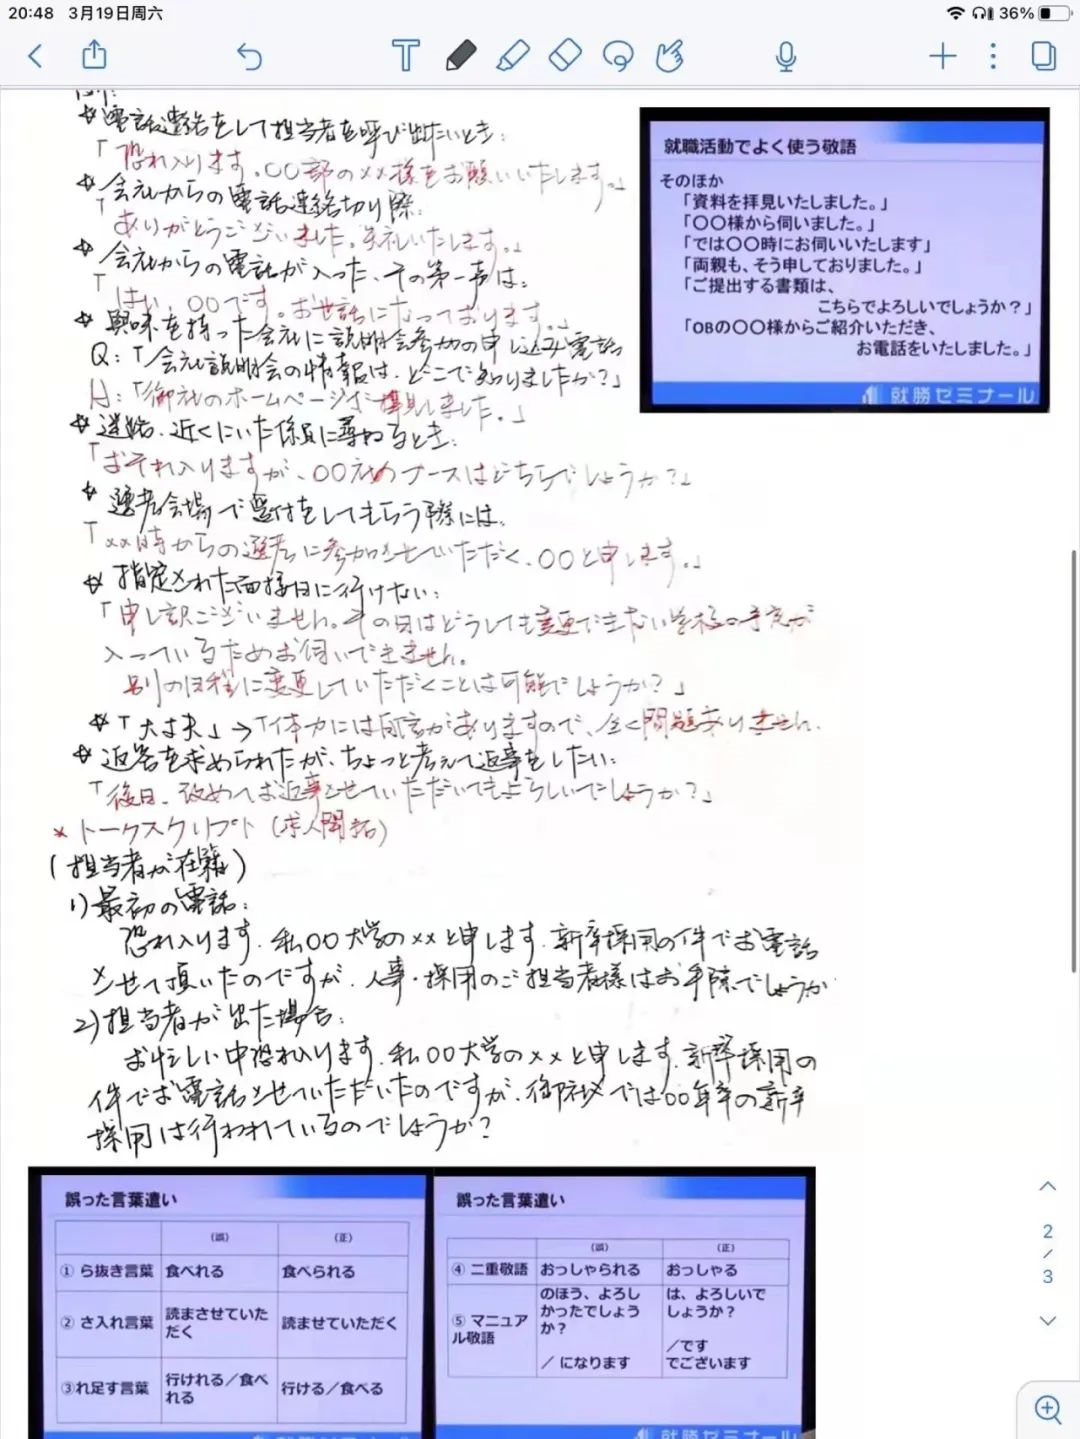 20:48 3月19日周六
36%
T
例:
☆電話連絡をして担当者を呼び出たいとき:
「恐れ入ります。〇〇部の××様をお願いいたします。」
☆会社からの電話連絡切り際:
「ありがとうございました。失礼いたします。」
☆会社からの電話が入った、その第一声は:
「はい、〇〇です。お世話になっております。」
☆興味を持った会社に説明会参加の申し込み電話
Q:「会社説明会の情報は、どこで知りましたか?」
A:「御社のホームページで拝見しました。」
☆迷路、近くにいた係員に尋ねるとき:
「おそれ入りますが、〇〇社のブースはどちらでしょうか?」
☆選考会場で受付をしてもらう際には:
「××時からの選考に参加させていただく、〇〇と申します。」
☆指定された面接日に行けない:
「申し訳ございません。その日はどうしても変更できない学校の予定が
入っているためお伺いできません。
別の日程に変更していただくことは可能でしょうか?」
☆「大丈夫」→「体力には自信がありますので、全く問題ありません。
☆返答を求められたが、ちょっと考えて返事をしたい:
「後日、改めてお返事させていただいてもよろしいでしょうか?」
*トークスクリプト(求人開拓)
(担当者が在籍)
1)最初の電話:
恐れ入ります、私〇〇大学の××と申します、新卒採用の件でお電話
させて頂いたのですが、人事・採用のご担当者様はお手隙でしょうか
2)担当者が出た場合:
お忙しい中恐れ入ります、私〇〇大学の××と申します、新卒採用の
件でお電話させていただいたのですが、御社では〇〇年卒の新卒
採用は行われているのでしょうか?
就職活動でよく使う敬語
そのほか
「資料を拝見いたしました。」
「〇〇様から伺いました。」
「では〇〇時にお伺いいたします」
「両親も、そう申しておりました。」
「ご提出する書類は、
こちらでよろしいでしょうか?」
「OBの〇〇様からご紹介いただき、
お電話をいたしました。」
就勝ゼミナール
誤った言葉遣い
(誤) (正)
① ら抜き言葉 食べれる 食べられる
② さ入れ言葉 読まさせていただく 読ませていただく
③れ足す言葉 行けれる/食べれる 行ける/食べる
就勝ゼミナール
誤った言葉遣い
(誤) (正)
④ 二重敬語 おっしゃられる おっしゃる
⑤ マニュアル敬語 のほう、よろしかったでしょうか? は、よろしいでしょうか?
/になります /です
でございます
就勝ゼミナール
2/3